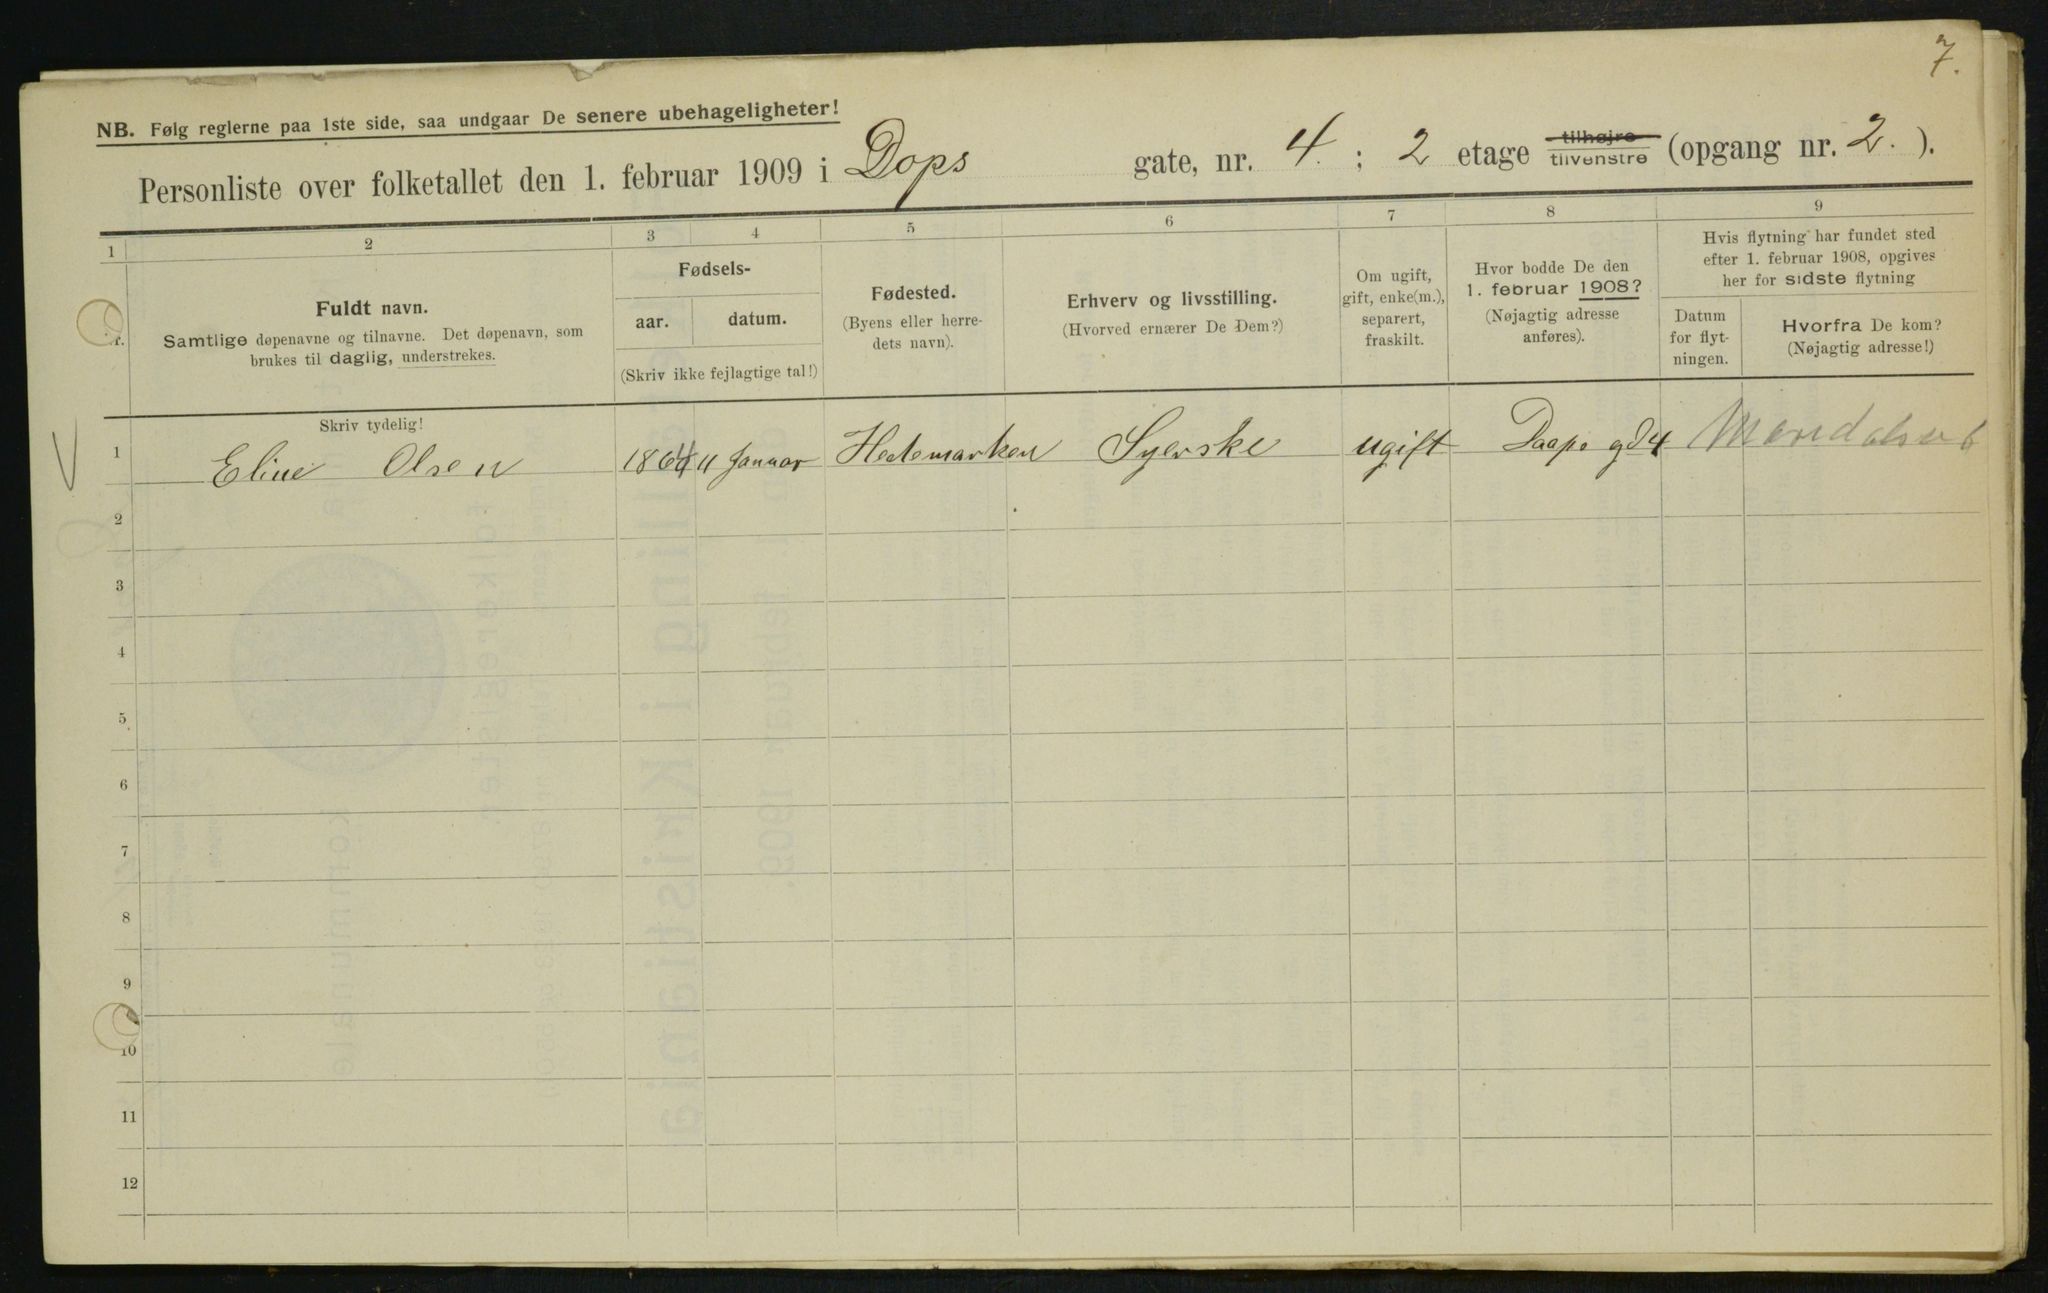 7.
NB. Følg reglerne paa 1ste side, saa undgaar De senere ubehageligheter!
Personliste over folketallet den 1. februar 1909 i Dops gate, nr. 4. ; 2 etage tilhøjre tilvenstre (opgang nr. 2. ).
1 2 3 4 5 6 7 8 9
Nr.
Fuldt navn.
Samtlige døpenavne og tilnavne. Det døpenavn, som
brukes til daglig, understrekes.
Fødsels-
aar. datum.
(Skriv ikke fejlagtige tal!)
Fødested.
(Byens eller herre-
dets navn).
Erhverv og livsstilling.
(Hvorved ernærer De Dem?)
Om ugift,
gift, enke(m.),
separert,
fraskilt.
Hvor bodde De den
1. februar 1908?
(Nøjagtig adresse
anføres).
Hvis flytning har fundet sted
efter 1. februar 1908, opgives
her for sidste flytning
Datum
for flyt-
ningen.
Hvorfra De kom?
(Nøjagtig adresse!)
Skriv tydelig!
1 Eline Olsen 1864 11 Januar Hedemarken Syerske ugift Daaps gd 4
2
3
4
5
6
7
8
9
10
11
12